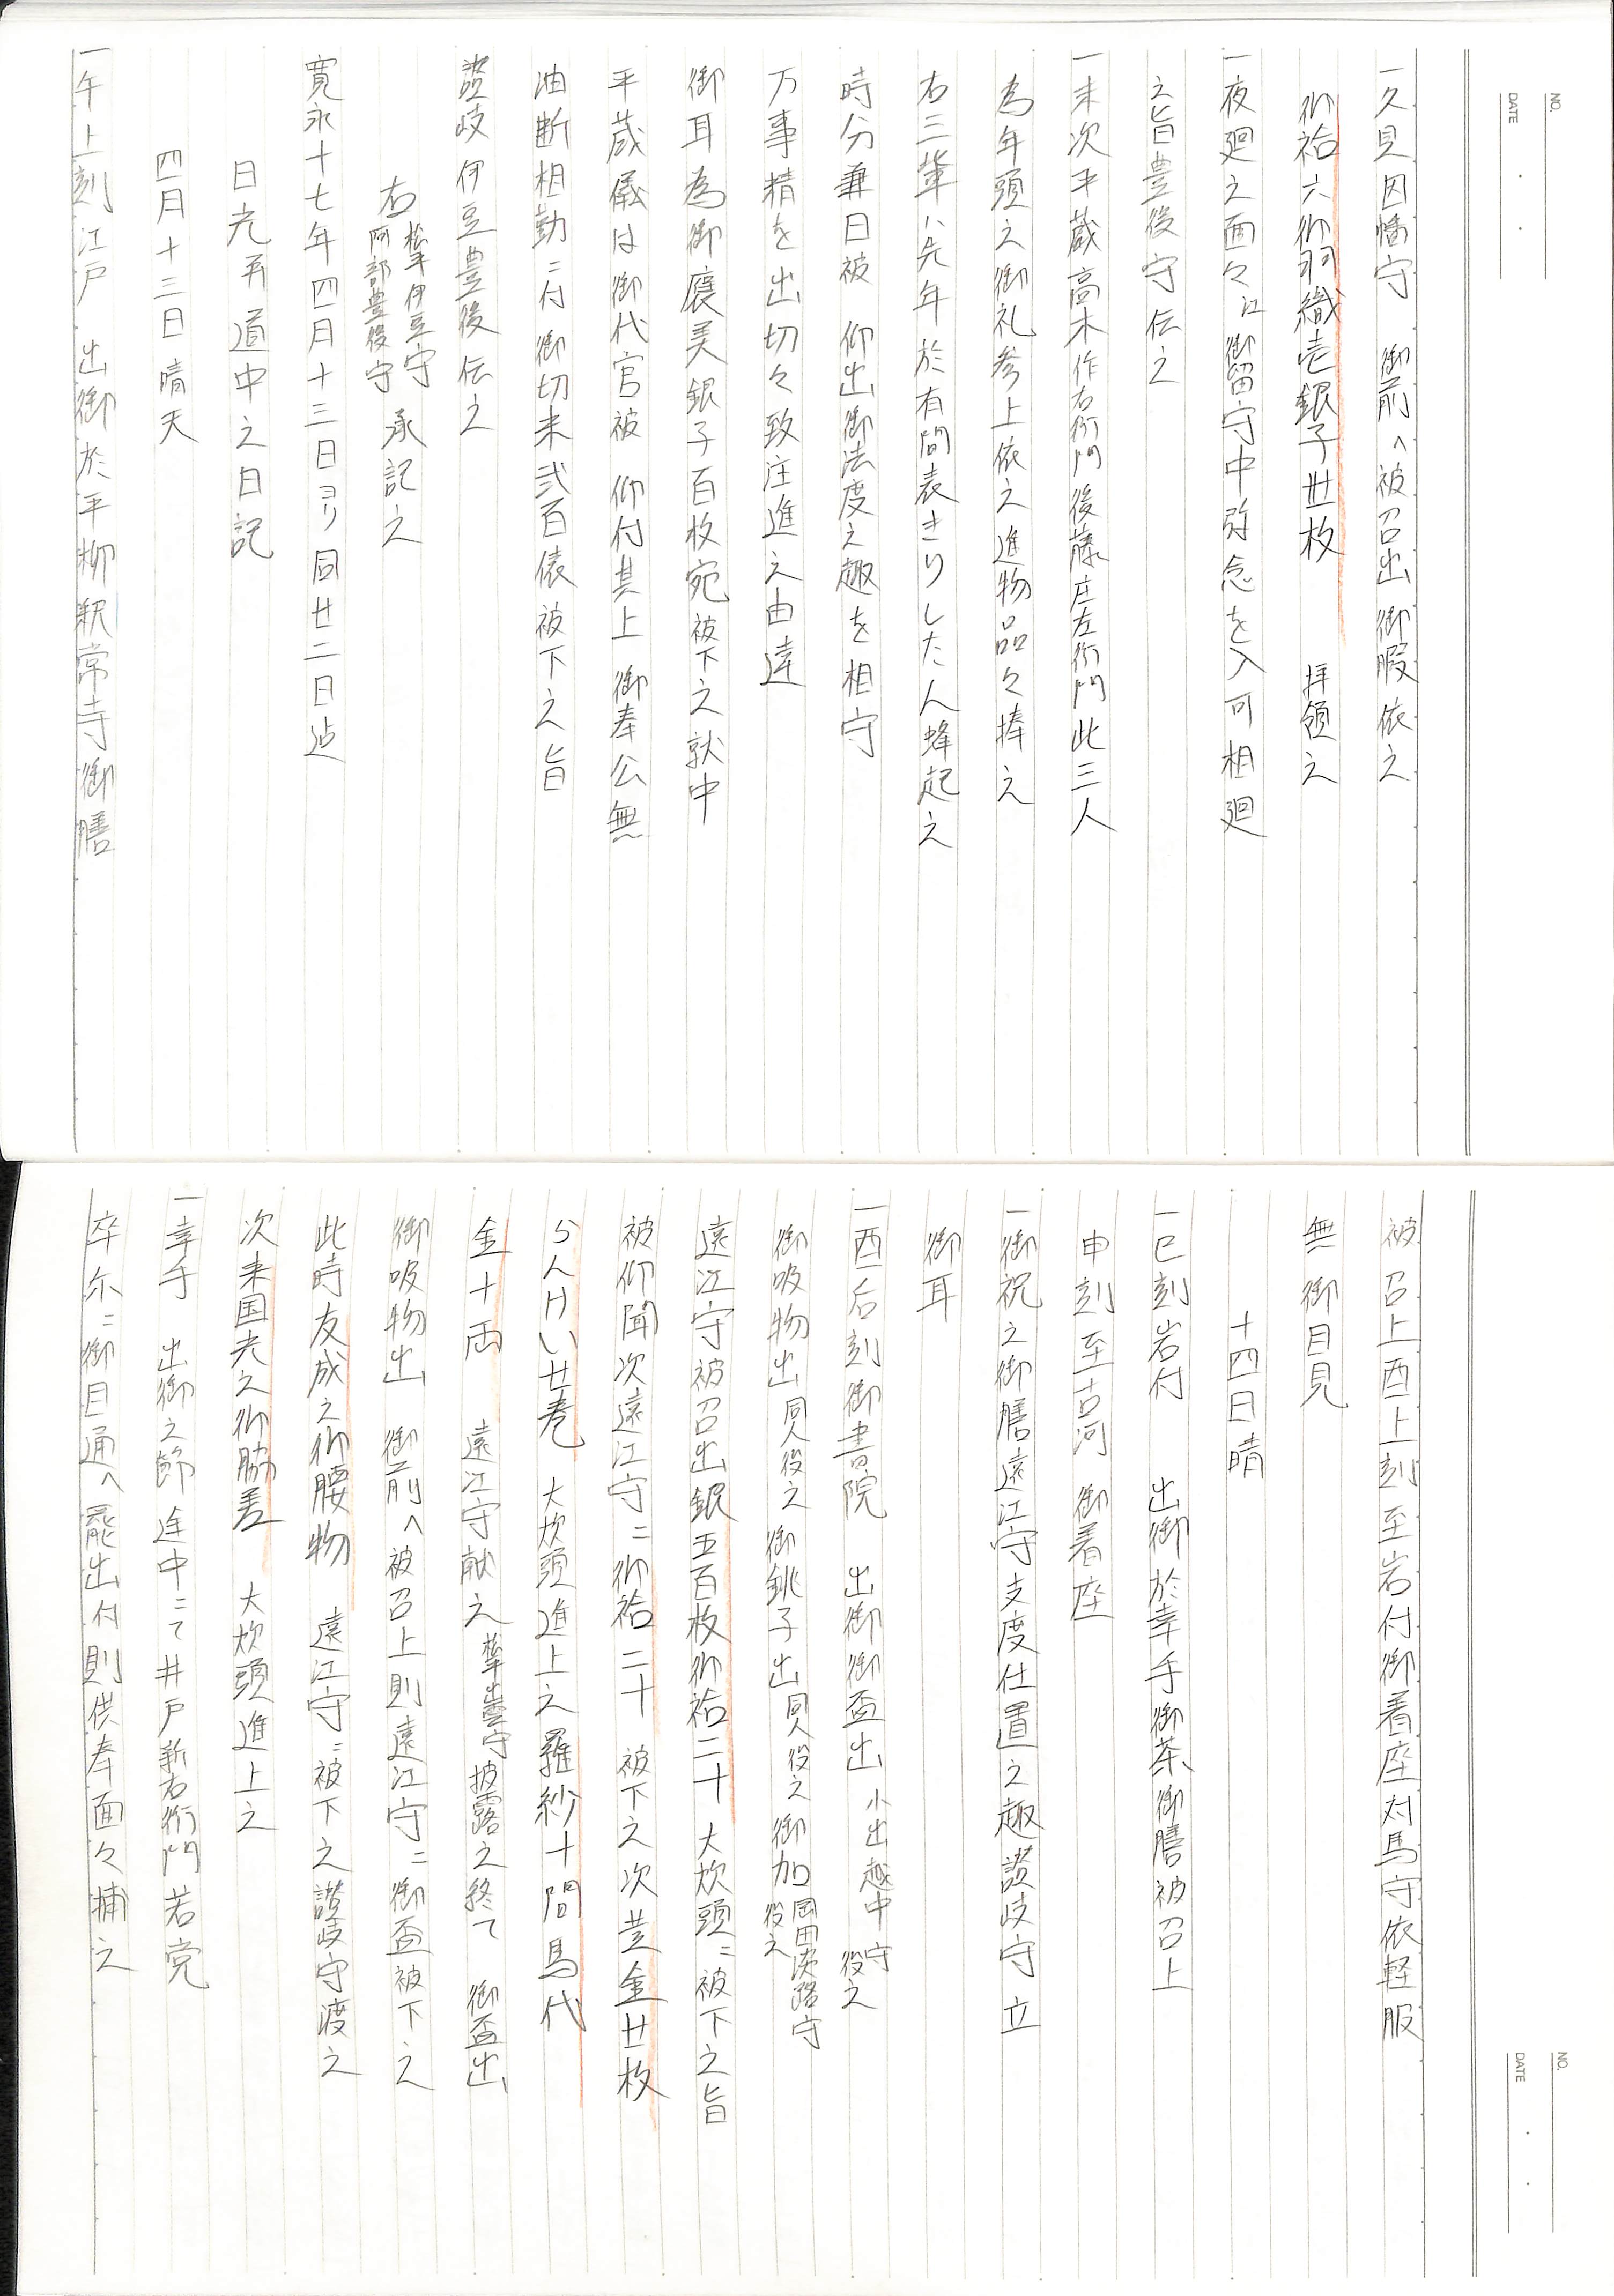 NO.
DATE
一久見因幡守　御前へ被召出御暇依之
御袷六御羽織壱銀子卅枚　拝領之
一夜廻之面々江御留守中弥念を入可相廻
之旨豊後守伝之
一末次平蔵高木作右衛門後藤庄左衛門此三人
為年頭之御礼参上依之進物品々捧之
右三輩ハ先年於有間表きりしたん蜂起之
時分兼日被　仰出御法度之趣を相守
万事精を出切々致庄進之由達
御耳為御褒美銀子百枚宛被下之就中
平蔵儀は御代官被　仰付其上　御奉公無
油断相勤ニ付御切米弐百俵被下之旨
讃岐伊豆豊後伝之
右　松平伊豆守　阿部豊後守　承記之
寛永十七年四月十三日ヨリ同廿二日迠
日光御道中之日記
四月十三日晴天
一午上刻江戸　出御於平柳釈常寺御膳
NO.
DATE
被　召上酉上刻至岩付御着座対馬守依軽服
無　御目見
十四日晴
一巳刻岩付　出御於幸手御茶御膳被召上
申刻至古河　御着座
一御祝之御膳遠江守支度仕置之趣讃岐守立
御耳
一酉后刻御書院　出御御盃出　小出越中守役之
御吸物出同人役之御銚子出同人役之御加岡田淡路守役之
遠江守被召出銀五百枚御袷二十大炊頭ニ被下之旨
被仰聞次遠江守ニ御袷二十　被下之次黄金廿枚
らんけい廿巻　大炊頭進上之羅紗十間馬代
金十両　遠江守献之松平出雲守披露之終て　御盃出
御吸物出　御前へ被召上則遠江守ニ御盃被下之
此時友成之御腰物　遠江守ニ被下之讃岐守渡之
次来国光之御脇差　大炊頭進上之
一幸手　出御之節途中ニて井戸新右衛門若党
卒尓ニ御目通へ罷出付則供奉面々捕之